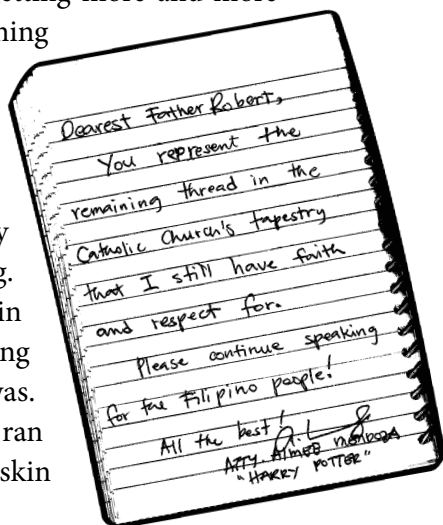 etting more and more
ning
y
g.
in
ng
was.
ran
skin
Dearest Father Robert,
You represent the
remaining thread in the
Catholic Church's tapestry
that I still have faith
and respect for.
Please continue speaking
for the Filipino people!
All the best!
ATTY. AIMEE MENDOZA
"HARRY POTTER"